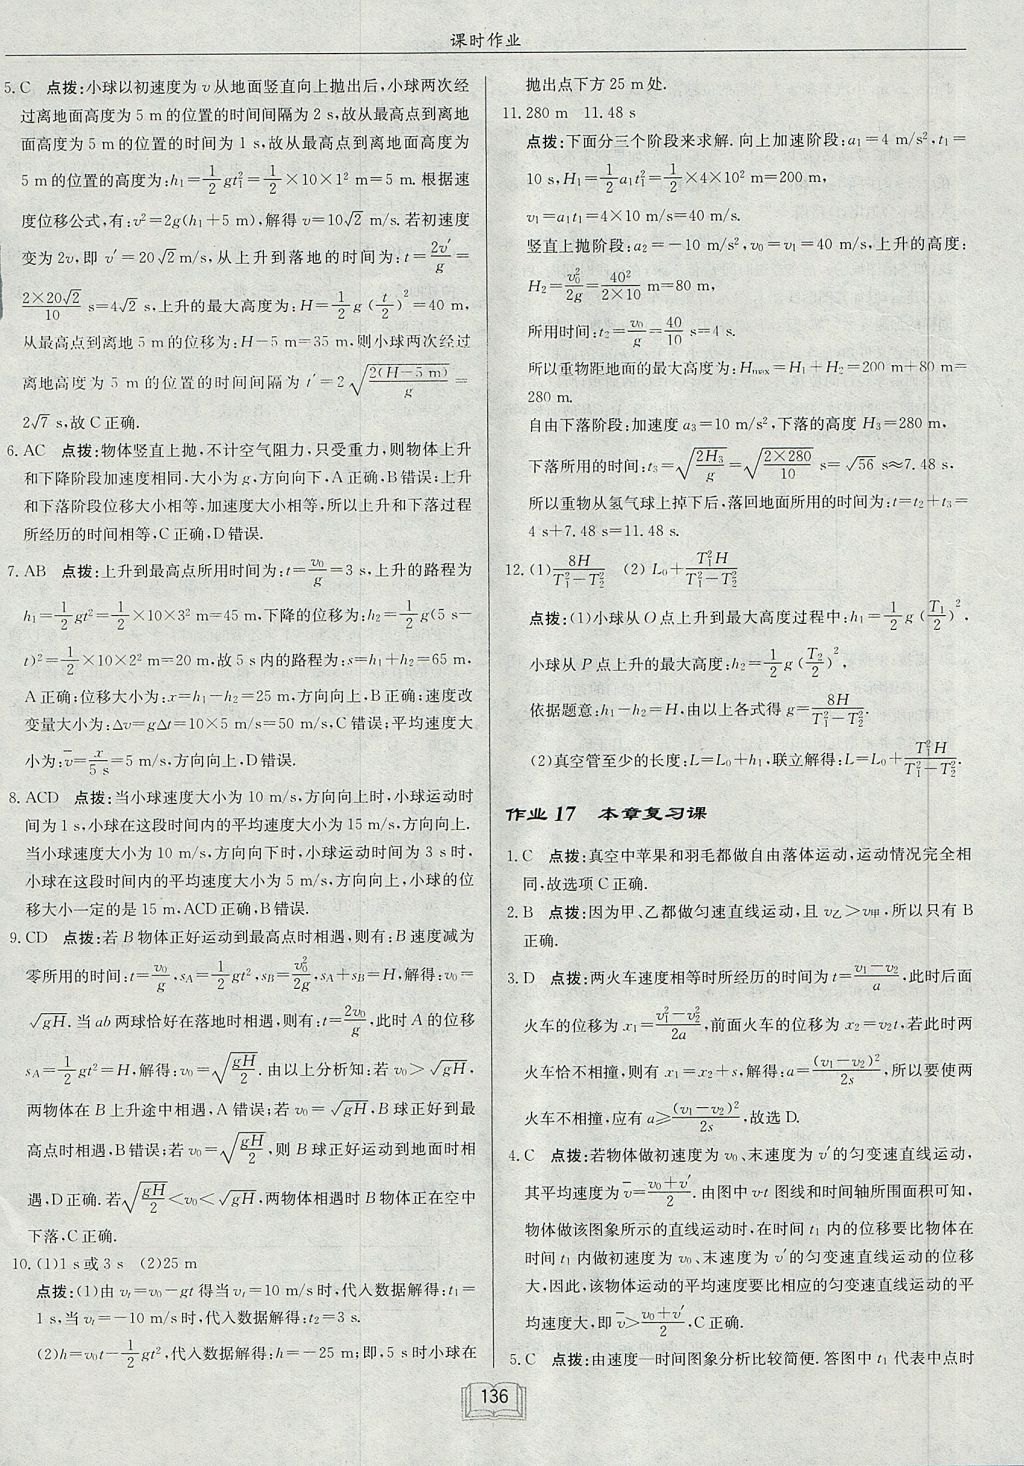 课时作业
5. C　点拨:小球以初速度为 v 从地面竖直向上抛出后,小球两次经
过离地面高度为 5 m 的位置的时间间隔为 2 s,故从最高点到离地
面高度为 5 m 的位置的时间为 1 s,故从最高点到离地面高度为
5 m 的位置的高度为:h₁=1/2 gt₁²=1/2×10×1² m=5 m. 根据速
度位移公式,有:v²=2g(h₁+5 m),解得 v=10√2 m/s. 若初速度
变为 2v,即 v′=20√2 m/s,从上升到落地的时间为:t=2v′/g=
2×20√2/10 s=4√2 s,上升的最大高度为:H=1/2 g(t/2)²=40 m,
从最高点到离地 5 m 的位移为:H-5 m=35 m,则小球两次经过
离地高度为 5 m 的位置的时间间隔为 t′=2√(2(H-5 m)/g)=
2√7 s,故 C 正确.
6. AC　点拨:物体竖直上抛,不计空气阻力,只受重力,则物体上升
和下降阶段加速度相同,大小为 g,方向向下,A 正确,B 错误;上升
和下落阶段位移大小相等,加速度大小相等,所以上升和下落过程
所经历的时间相等,C 正确,D 错误.
7. AB　点拨:上升到最高点所用时间为:t=v₀/g=3 s,上升的路程为
h₁=1/2 gt²=1/2×10×3² m=45 m,下降的位移为:h₂=1/2 g(5 s-
t)²=1/2×10×2² m=20 m,故 5 s 内的路程为:s=h₁+h₂=65 m,
A 正确;位移大小为:x=h₁-h₂=25 m,方向向上,B 正确;速度改
变量大小为:Δv=gΔt=10×5 m/s=50 m/s,C 错误;平均速度大
小为:v̄=x/5 s=5 m/s,方向向上,D 错误.
8. ACD　点拨:当小球速度大小为 10 m/s,方向向上时,小球运动时
间为 1 s,小球在这段时间内的平均速度大小为 15 m/s,方向向上.
当小球速度大小为 10 m/s,方向向下时,小球运动时间为 3 s 时,
小球在这段时间内的平均速度大小为 5 m/s,方向向上,小球的位
移大小一定的是 15 m,ACD 正确,B 错误.
9. CD　点拨:若 B 物体正好运动到最高点时相遇,则有:B 速度减为
零所用的时间:t=v₀/g,sA=1/2 gt²,sB=v₀²/2g,sA+sB=H,解得:v₀=
√gH. 当 ab 两球恰好在落地时相遇,则有:t=2v₀/g,此时 A 的位移
sA=1/2 gt²=H,解得:v₀=√(gH/2). 由以上分析知:若 v₀>√gH,
两物体在 B 上升途中相遇,A 错误;若 v₀=√gH,B 球正好到最
高点时相遇,B 错误;若 v₀=√(gH/2),则 B 球正好运动到地面时相
遇,D 正确. 若√(gH/2)<v₀<√gH,两物体相遇时 B 物体正在空中
下落,C 正确.
10. (1)1 s 或 3 s　(2)25 m
点拨:(1)由 vt=v₀-gt 得当 vt=10 m/s 时,代入数据解得:t₁=
1 s,当 vt=-10 m/s 时,代入数据解得:t₂=3 s.
(2)h=v₀t-1/2 gt²,代入数据解得:h=-25 m;即,5 s 时小球在
抛出点下方 25 m 处.
11. 280 m　11.48 s
点拨:下面分三个阶段来求解. 向上加速阶段:a₁=4 m/s²,t₁=
10 s,H₁=1/2 a₁t₁²=1/2×4×10² m=200 m,
v₁=a₁t₁=4×10 m/s=40 m/s.
竖直上抛阶段:a₂=-10 m/s²,v₀=v₁=40 m/s,上升的高度:
H₂=v₀²/2g=40²/2×10 m=80 m,
所用时间:t₂=v₀/g=40/10 s=4 s.
所以重物距地面的最大高度为:Hmax=H₁+H₂=200 m+80 m=
280 m.
自由下落阶段:加速度 a₃=10 m/s²,下落的高度 H₃=280 m,
下落所用的时间:t₃=√(2H₃/g)=√(2×280/10) s=√56 s≈7.48 s,
所以重物从氢气球上掉下后,落回地面所用的时间为:t=t₂+t₃=
4 s+7.48 s=11.48 s.
12. (1)8H/(T₁²-T₂²)　(2)L₀+T₁²H/(T₁²-T₂²)
点拨:(1)小球从 O 点上升到最大高度过程中:h₁=1/2 g(T₁/2)²,
小球从 P 点上升的最大高度:h₂=1/2 g(T₂/2)²,
依据题意:h₁-h₂=H,由以上各式得 g=8H/(T₁²-T₂²).
(2)真空管至少的长度:L=L₀+h₁,联立解得:L=L₀+T₁²H/(T₁²-T₂²).
作业 17　本章复习课
1. C　点拨:真空中苹果和羽毛都做自由落体运动,运动情况完全相
同,故选项 C 正确.
2. B　点拨:因为甲、乙都做匀速直线运动,且 v乙>v甲,所以只有 B
正确.
3. D　点拨:两火车速度相等时所经历的时间为 t=(v₁-v₂)/a,此时后面
火车的位移为 x₁=(v₁²-v₂²)/2a,前面火车的位移为 x₂=v₂t,若此时两
火车恰不相撞,则有 x₁=x₂+s,解得:a=(v₁-v₂)²/2s,所以要使两
火车不相撞,应有 a≥(v₁-v₂)²/2s,故选 D.
4. C　点拨:若物体做初速度为 v₀、末速度为 v′的匀变速直线运动,
其平均速度为 v̄=(v₀+v′)/2. 由图中 v-t 图线和时间轴所围面积可知,
物体做该图象所示的直线运动时,在时间 t₁ 内的位移要比物体在
时间 t₁ 内做初速度为 v₀、末速度为 v′的匀变速直线运动的位移
大,因此,该物体运动的平均速度要比相应的匀变速直线运动的平
均速度大,即 v̄>(v₀+v′)/2,C 正确.
5. C　点拨:由速度—时间图象分析比较简便. 答图中 t₁ 代表中点时
136